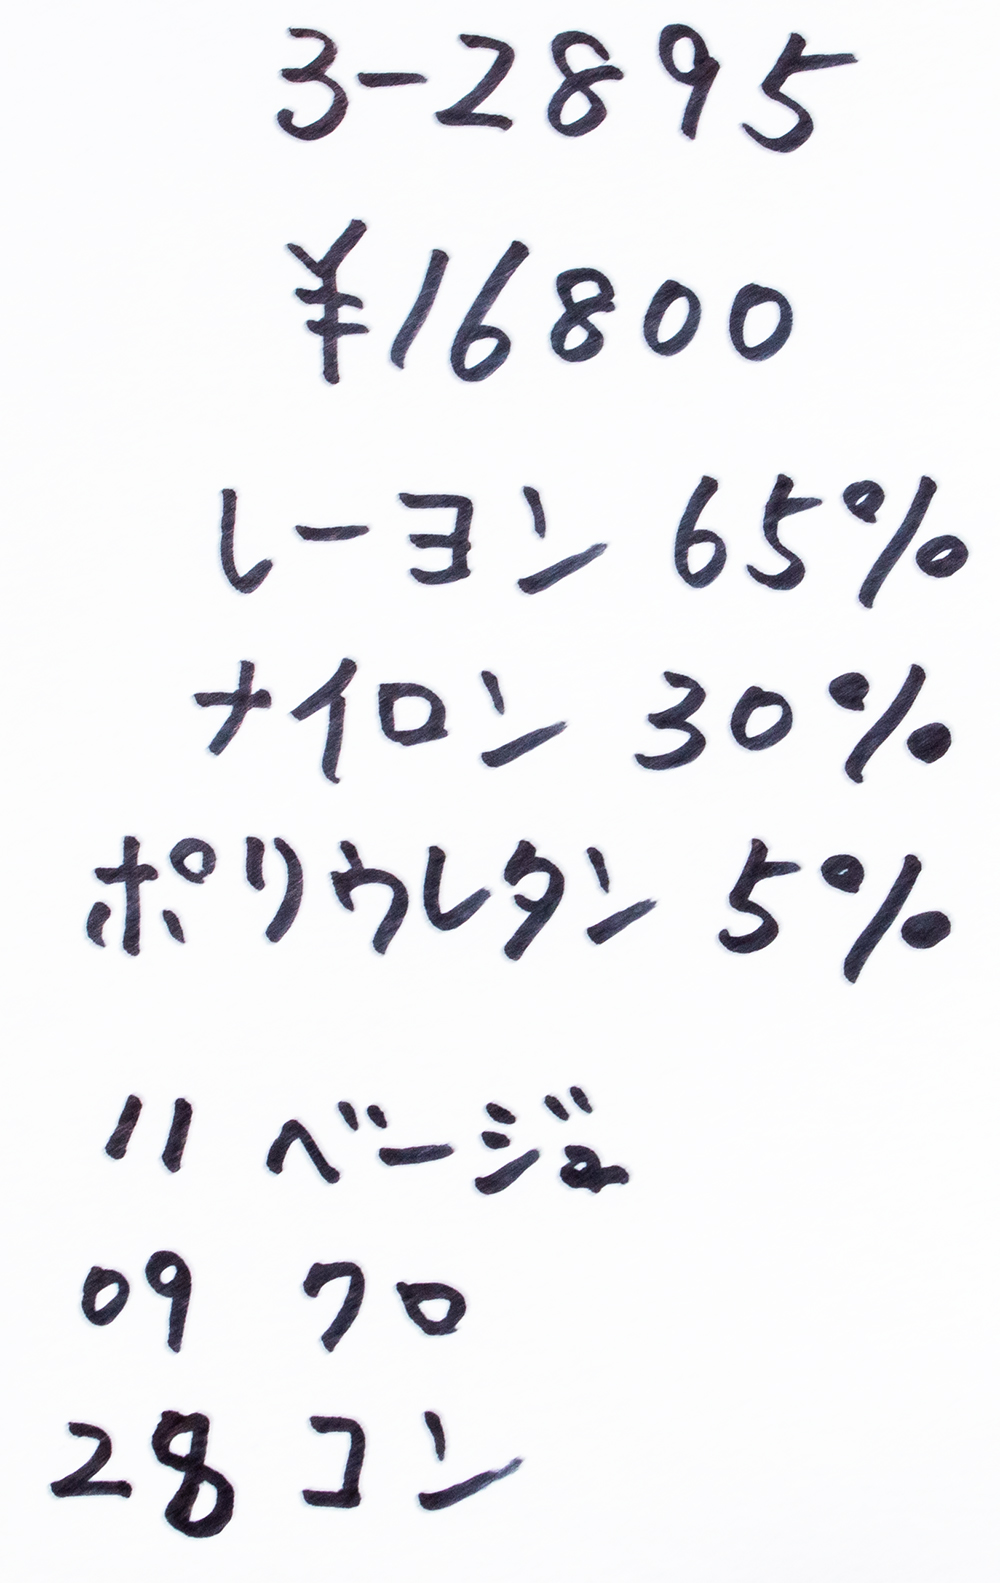 3-2895
¥16800
レーヨン 65%
ナイロン 30%
ポリウレタン 5%
11 ベージュ
09 クロ
28 コン